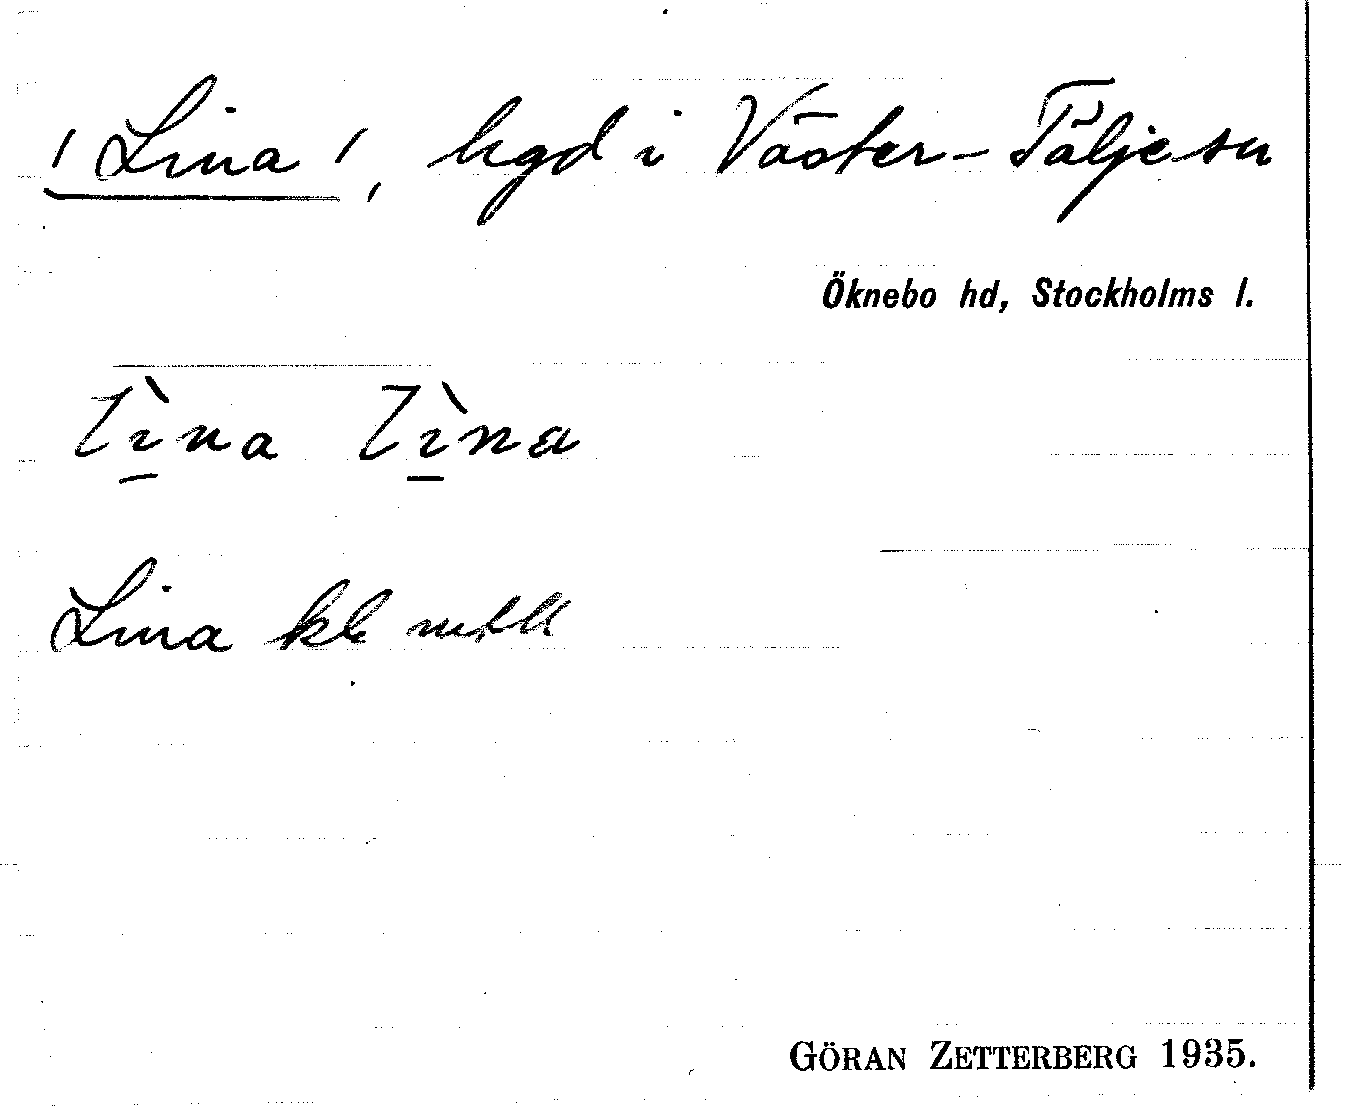 'Lina', hgd i Väster-Tälje sn
Öknebo hd, Stockholms l.
lìna lìna
Lina kb mtll
GÖRAN ZETTERBERG 1935.